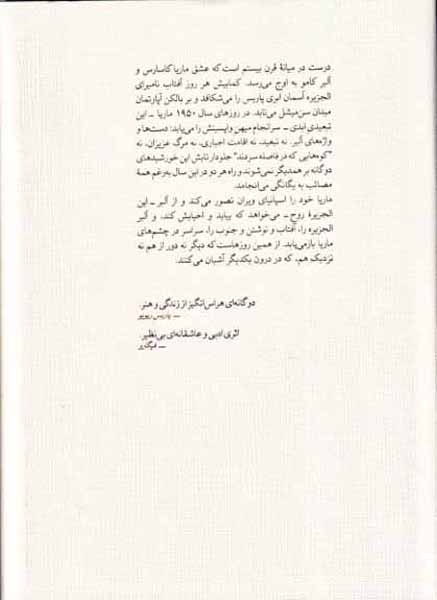 درست در میانهٔ قرن بیستم است که عشق ماریا کاسارس و
آلبر کامو به اوج می‌رسد. کمابیش هر روز آفتاب نامیرای
الجزیره آسمان ابری پاریس را می‌شکافد و بر بالکن آپارتمان
میدان سن‌میشل می‌تابد. در روزهای سال ۱۹۵۰ ماریا ــ این
تبعیدی ابدی ــ سرانجام میهن واپسینش را می‌یابد: دست‌ها و
واژه‌های آلبر. نه تبعید، نه اقامت اجباری، نه مرگ عزیزان، نه
"کوه‌هایی که در فاصله سردند" جلودار تابش این خورشیدهای
دوگانه بر همدیگر نمی‌شوند و راه هر دو در این سال به‌رغم همهٔ
مصائب به یگانگی می‌انجامد.
ماریا خود را اسپانیای ویران تصور می‌کند و از آلبر ــ این
الجزیرهٔ روح ــ می‌خواهد که بیاید و احیایش کند، و آلبر
الجزیره را، آفتاب و نوشتن و جنوب را، سراسر در چشم‌های
ماریا بازمی‌یابد. از همین روزهاست که دیگر نه دور از هم نه
نزدیک هم، که در درون یکدیگر آشیان می‌کنند.
دوگانه‌ای هراس‌انگیز از زندگی و هنر.
ــ پاریس ریویو
اثری ادبی و عاشقانه‌ای بی‌نظیر.
ــ فیگارو